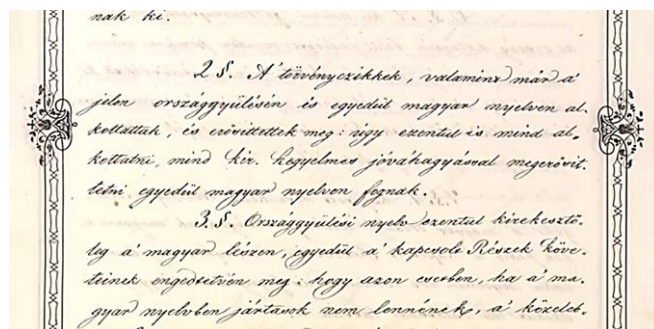 nak ki.
2 §. A' törvényczikkek, valamint már a'
jelen országgyűlésén is egyedül magyar nyelven al-
kottattak, és erősíttettek meg: úgy ezentúl is mind al-
kottatni, mind kir. kegyelmes jóváhagyással megerősít-
tetni egyedül magyar nyelven fognak.
3. §. Országgyűlési nyelv ezentúl kirekesztő-
leg a' magyar lészen, egyedül a' kapcsolt Részek köve-
teinek engedtetvén meg: hogy azon esetben, ha a' ma-
gyar nyelvben jártasok nem lennének, a' közeleb-